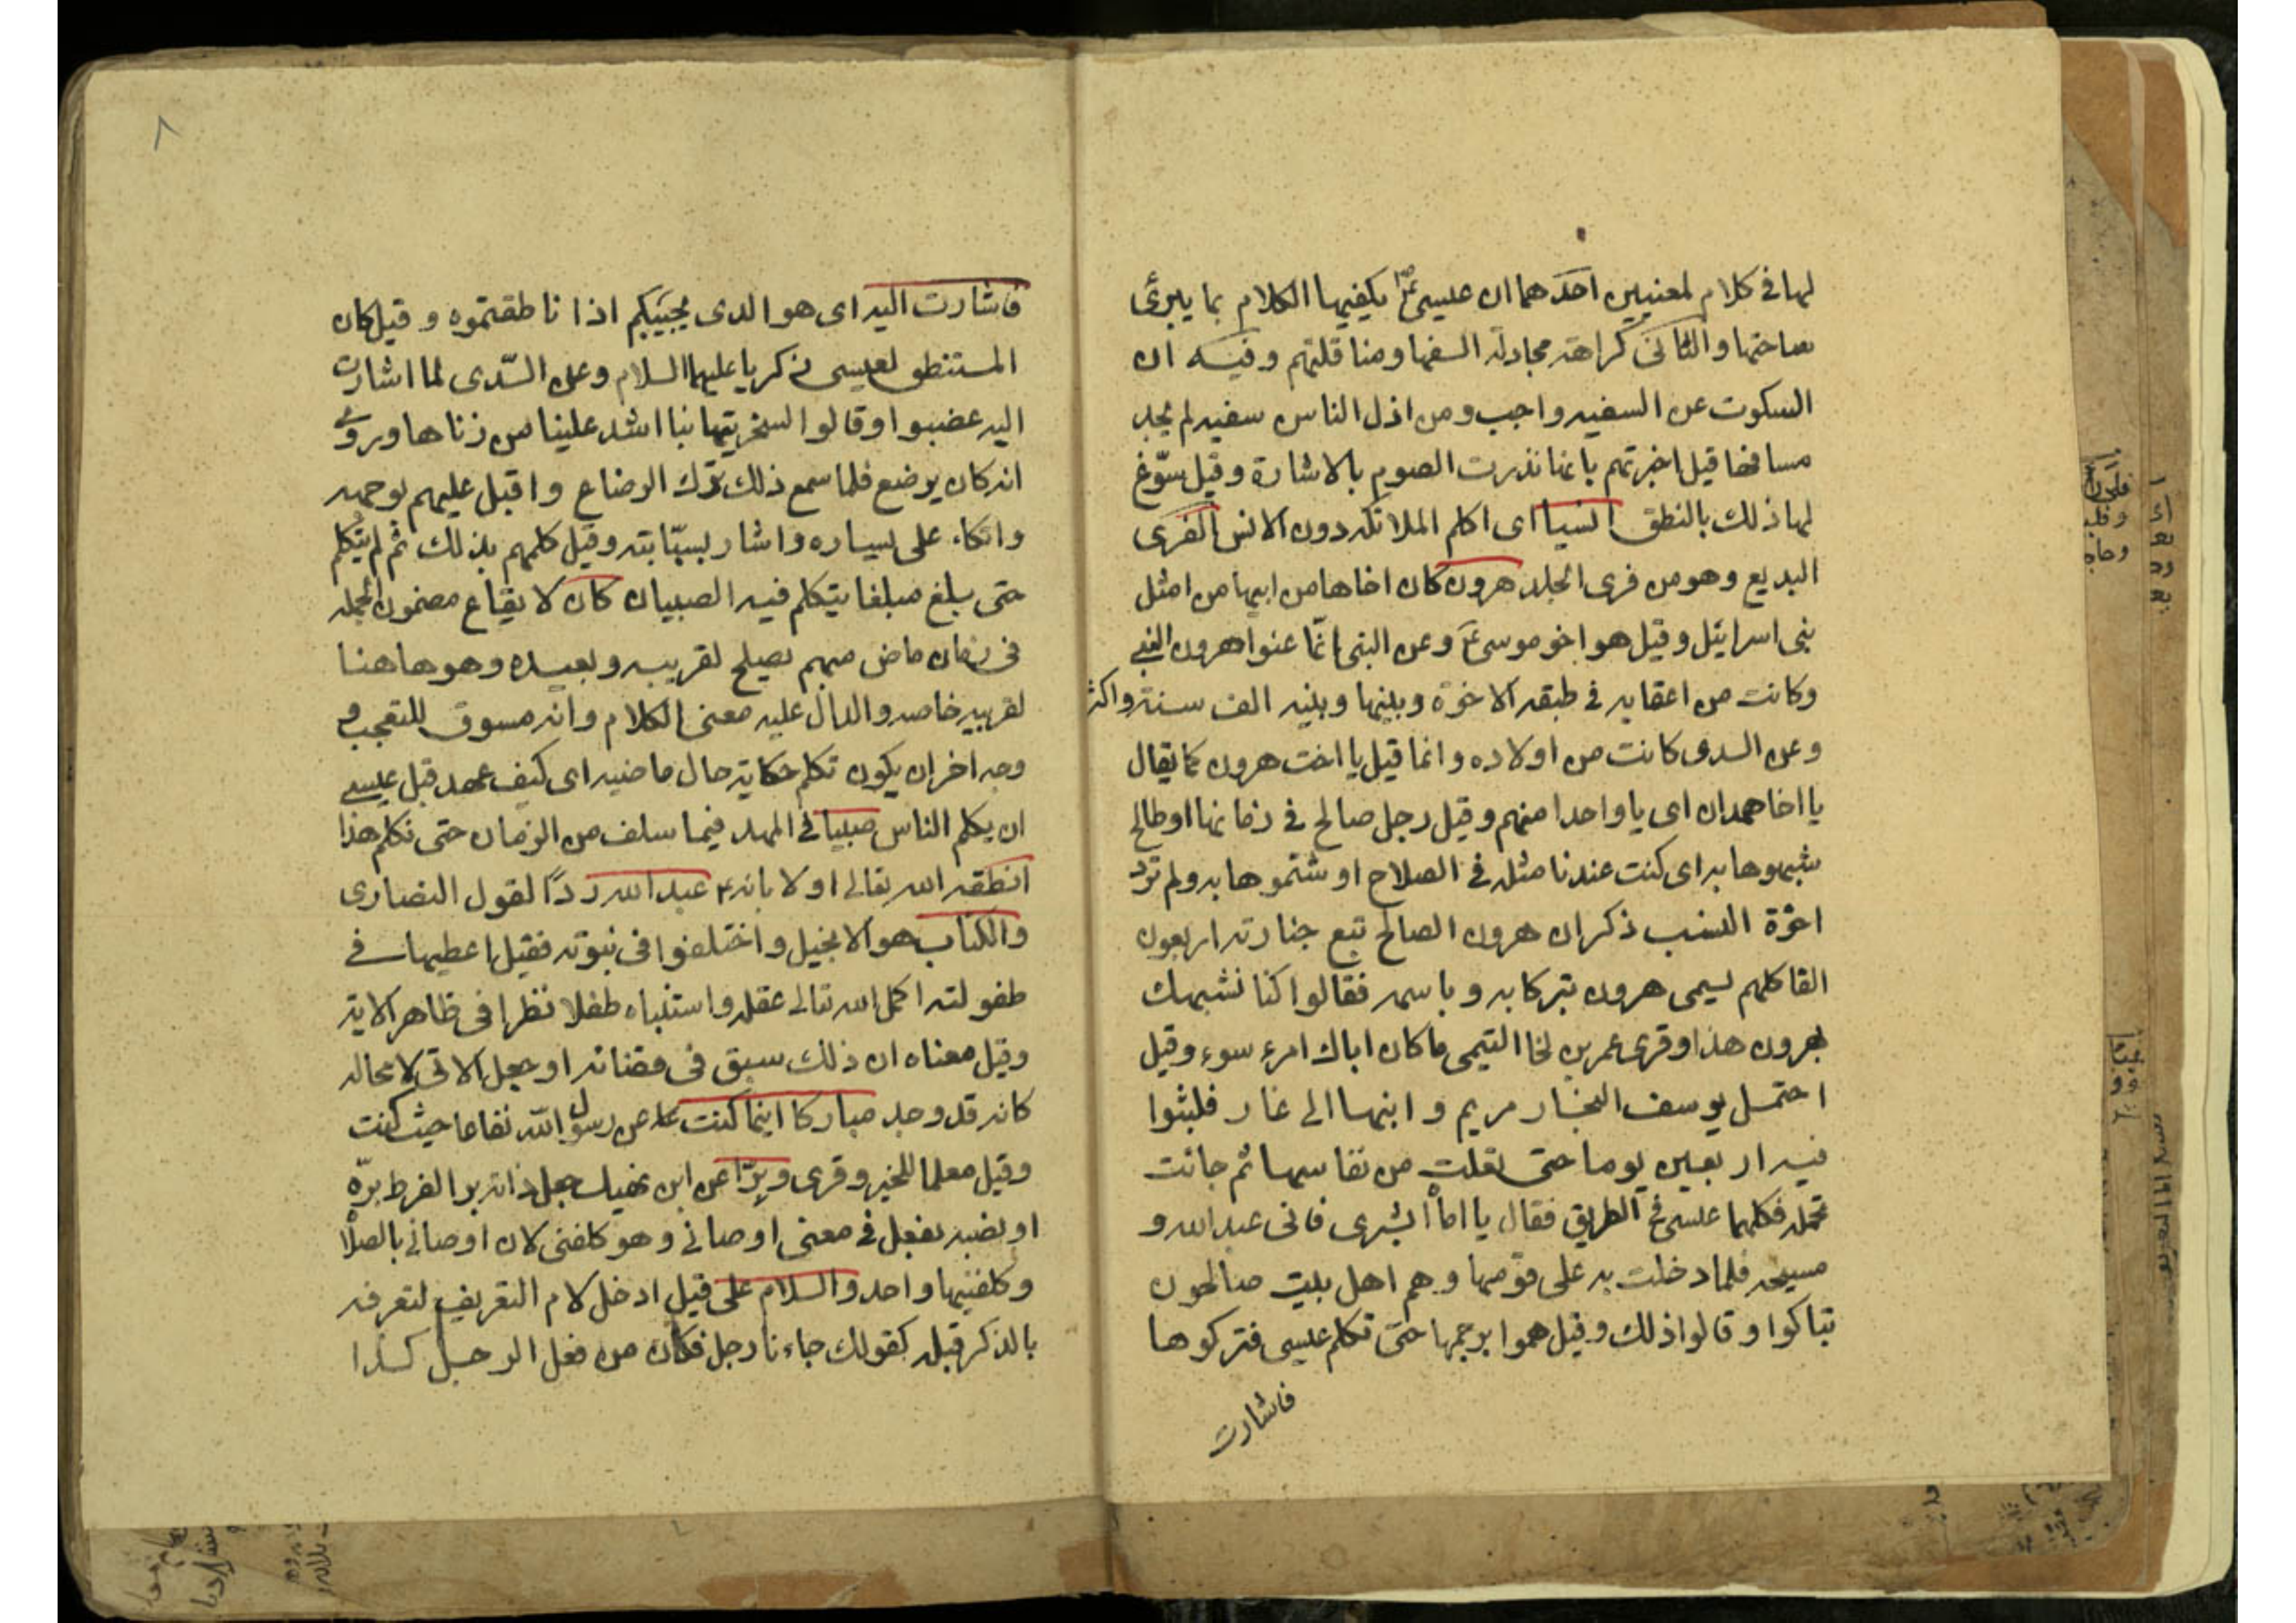 لها فى كلام لمعنيين احدهما ان عيسى ع م يكفيها الكلام بما يبرئ
ساحتها والثانى كراهة مجادلة السفها ومناقلتهم وفيه ان
السكوت عن السفيه واجب ومن اذل الناس سفيه لم يجد
مسافها قيل اخبرتهم بانها نذرت الصوم بالاشارة وقيل سوّغ
لها ذلك بالنطق انسيا اى اكلم الملائكه دون الانس الفرى
البديع وهو من فرى الجلد هرون كان اخاها من ابيها من امثل
بنى اسرايئل وقيل هو اخو موسى ع وعن النبى انّما عنوا هرون النبى
وكانت من اعقابه فى طبقه الاخوة وبينها وبينه الف سنة واكثر
وعن السدى كانت من اولاده وانما قيل يا اخت هرون كما يقال
يا اخا همدان اى يا واحدا منهم وقيل رجل صالح فى زمانها او طالح
شبهوها به اى كنت عندنا مثله فى الصلاح او شتموها به ولم ترد
اخوّة النسب ذكر ان هرون الصالح تبع جنازته اربعون
الفا كلهم يسمى هرون تبركا به وباسمه فقالوا كنا نشبهك
بهرون هذا وقرى عمر بن لجا التيمى ما كان اباك امرء سوء وقيل
احتمل يوسف النجار مريم وابنها الى غار فلبثوا
فيه اربعين يوما حتى تعلت من نفاسها ثم جائت
تحمله فكلمها عيسى فى الطريق فقال يا اماه ابشرى فانى عبد الله و
مسيحه فلما دخلت به على قومها وهم اهل بيت صالحون
تباكوا وقالوا ذلك وقيل هموا برجمها حتى تكلم عيسى فتركوها
فاشارت
٨
فاشارت اليه اى هو الذى يجيبكم اذا ناطقتموه وقيل كان
المستنطق لعيسى زكريا عليهما السلام وعن السّدى لما اشارت
اليه غضبوا وقالوا لسخريتها بنا اشد علينا من زناها وروى
انه كان يرضع فلما سمع ذلك ترك الرضاع واقبل عليهم بوجهه
واتكاء على يساره واشار بسبّابته وقيل كلمهم بذلك ثم لم يتكلم
حتى بلغ مبلغا يتكلم فيه الصبيان كان لايقاع مضمون الجمله
فى زمان ماض مبهم يصلح لقريبه وبعيده وهو هاهنا
لقريبه خاصه والدال عليه معنى الكلام وانه مسوق للتعجب و
وجه اخر ان يكون تكلم حكاية حال ماضيه اى كيف عهد قبل عيسى
ان يكلم الناس صبيا فى المهد فيما سلف من الزمان حتى نكلم هذا
انطقه الله تعالى اولا بانه عبد الله ردًا لقول النصارى
والكتاب هو الانجيل واختلفوا فى نبوته فقيل اعطيها فى
طفولته اكمل الله تعالى عقله واستنباه طفلا نظرا فى ظاهر الاية
وقيل معناه ان ذلك سبق فى قضائه او جعل الاتى لا محاله
كانه قد وجد مباركا اينما كنت عن رسول الله نفاعا حيث كنت
وقيل معلما للخير وقرى وبِرّا عن ابى نهيك جعل ذاته برا لفرط برّه
او نصبه بفعل فى معنى اوصانى وهو كلفنى لان اوصانى بالصلا
وكلفنيها واحد والسلام على قيل ادخل لام التعريف لتعرفه
بالذكر قبله كقولك جاءنا رجل فكان من فعل الرجل كذا